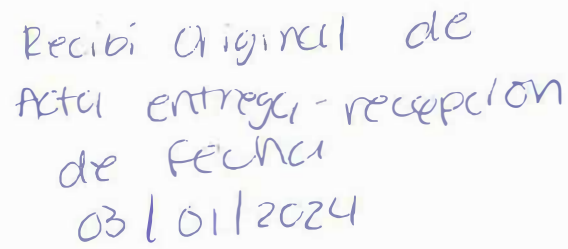 Recibi Original de
Acta entrega-recepcion
de fecha
03/01/2024